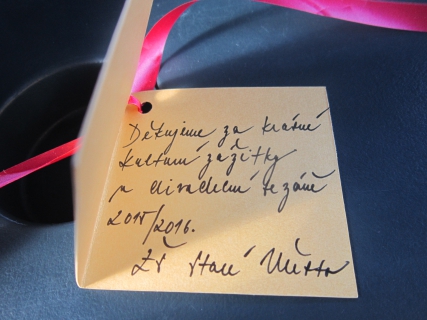 Děkujeme za krásné
kulturní zážitky
v divadelní sezóně
2015/2016.
ZŠ Staré Město